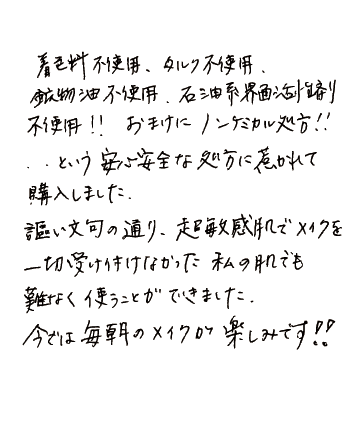 着色料不使用、タルク不使用、
鉱物油不使用、石油系界面活性剤
不使用!! おまけに ノンケミカル処方!!
‥という 安心安全な処方に惹かれて
購入しました.
謳い文句の通り、超敏感肌でメイクを
一切受け付けなかった 私の肌でも
難なく 使うことができました.
今では毎朝のメイクが 楽しみです!!